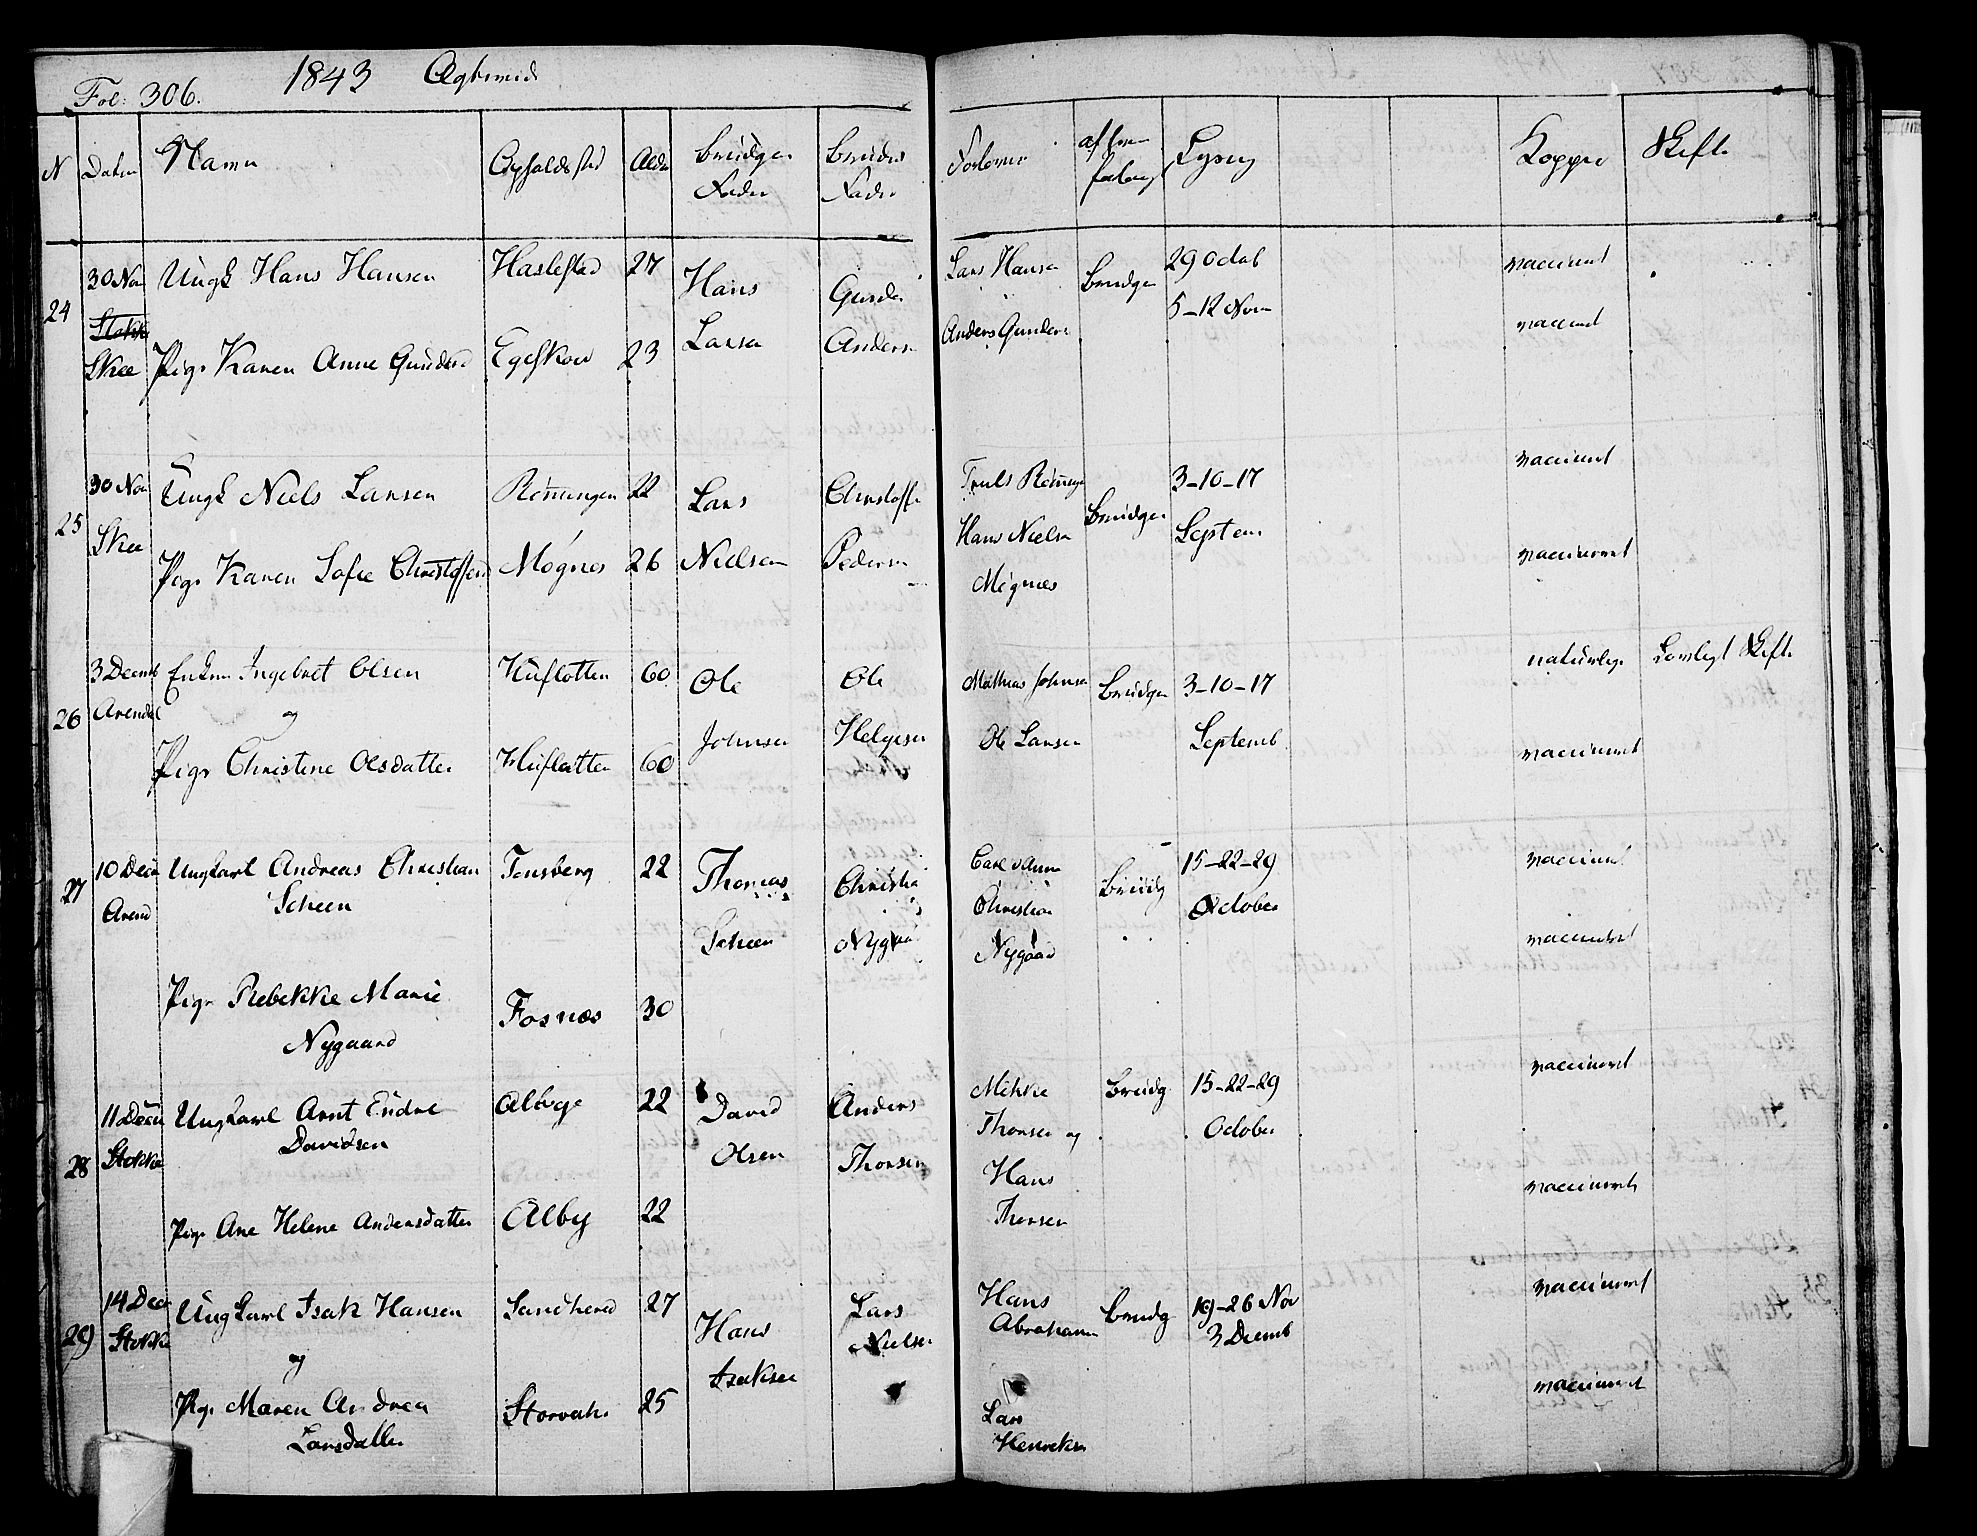 Fol: 306. 1843
N Datum Navn Opholdssted Alder Brudgom Fader Brudes Fader Forlover Lysning Kopper Skifte
24 30 Nov Skee
Ungk Hans Hansen Haslestad 27 Hans Larsen Gunder Anders Lars Hansen Brudgom 29 Octob vaccineret
Pige Karen Anne Gunders Egeskov 23 Anders Gunders 5-12 Nov vaccineret
25 30 Nov Skee
Ungk Niels Larsen 22 Lars Nielsen Christoffer Pedersen Truls Brudgom 3-10-17 Septem vaccineret
Pige Karen Sofie Christoffers 26 Hans Nielsen vaccineret
26 3 Decemb Arendal
Enkm Ingebret Olsen 60 Ole Johnsen Ole Helgesen Mathias Johnsen Brudgom 3-10-17 naturlige Lovligt Skifte
og
Pige Christine Olsdatter 60 Ole Larsen Septemb vaccineret
27 10 Decem Arend
Ungkarl Andreas Christian Scheen Tønsberg 22 Thomas Scheen Christian Nygaard Christian Nygaard Brudg 15-22-29 October vaccineret
vaccineret
Pige Rebekke Marie Nygaard Fosnæs 30
28 11 Decem Stokke
Ungkarl Arnt Endre Davidsen 22 David Olsen Anders Thorsen Mikkel Thorsen og Brudg 15-22-29 October vaccineret
Pige Ane Helene Andersdatter Alby 22 Hans Thorsen vaccineret
29 14 Dec Stokke
Ungkarl Isak Hansen Sandherred 27 Hans Isaksen Lars Nielsen Hans Abraham Brudg 19-26 Nov 3 Decemb vaccineret
og
Pige Maren Andrea Larsdatter 25 Lars Henriksen vaccineret